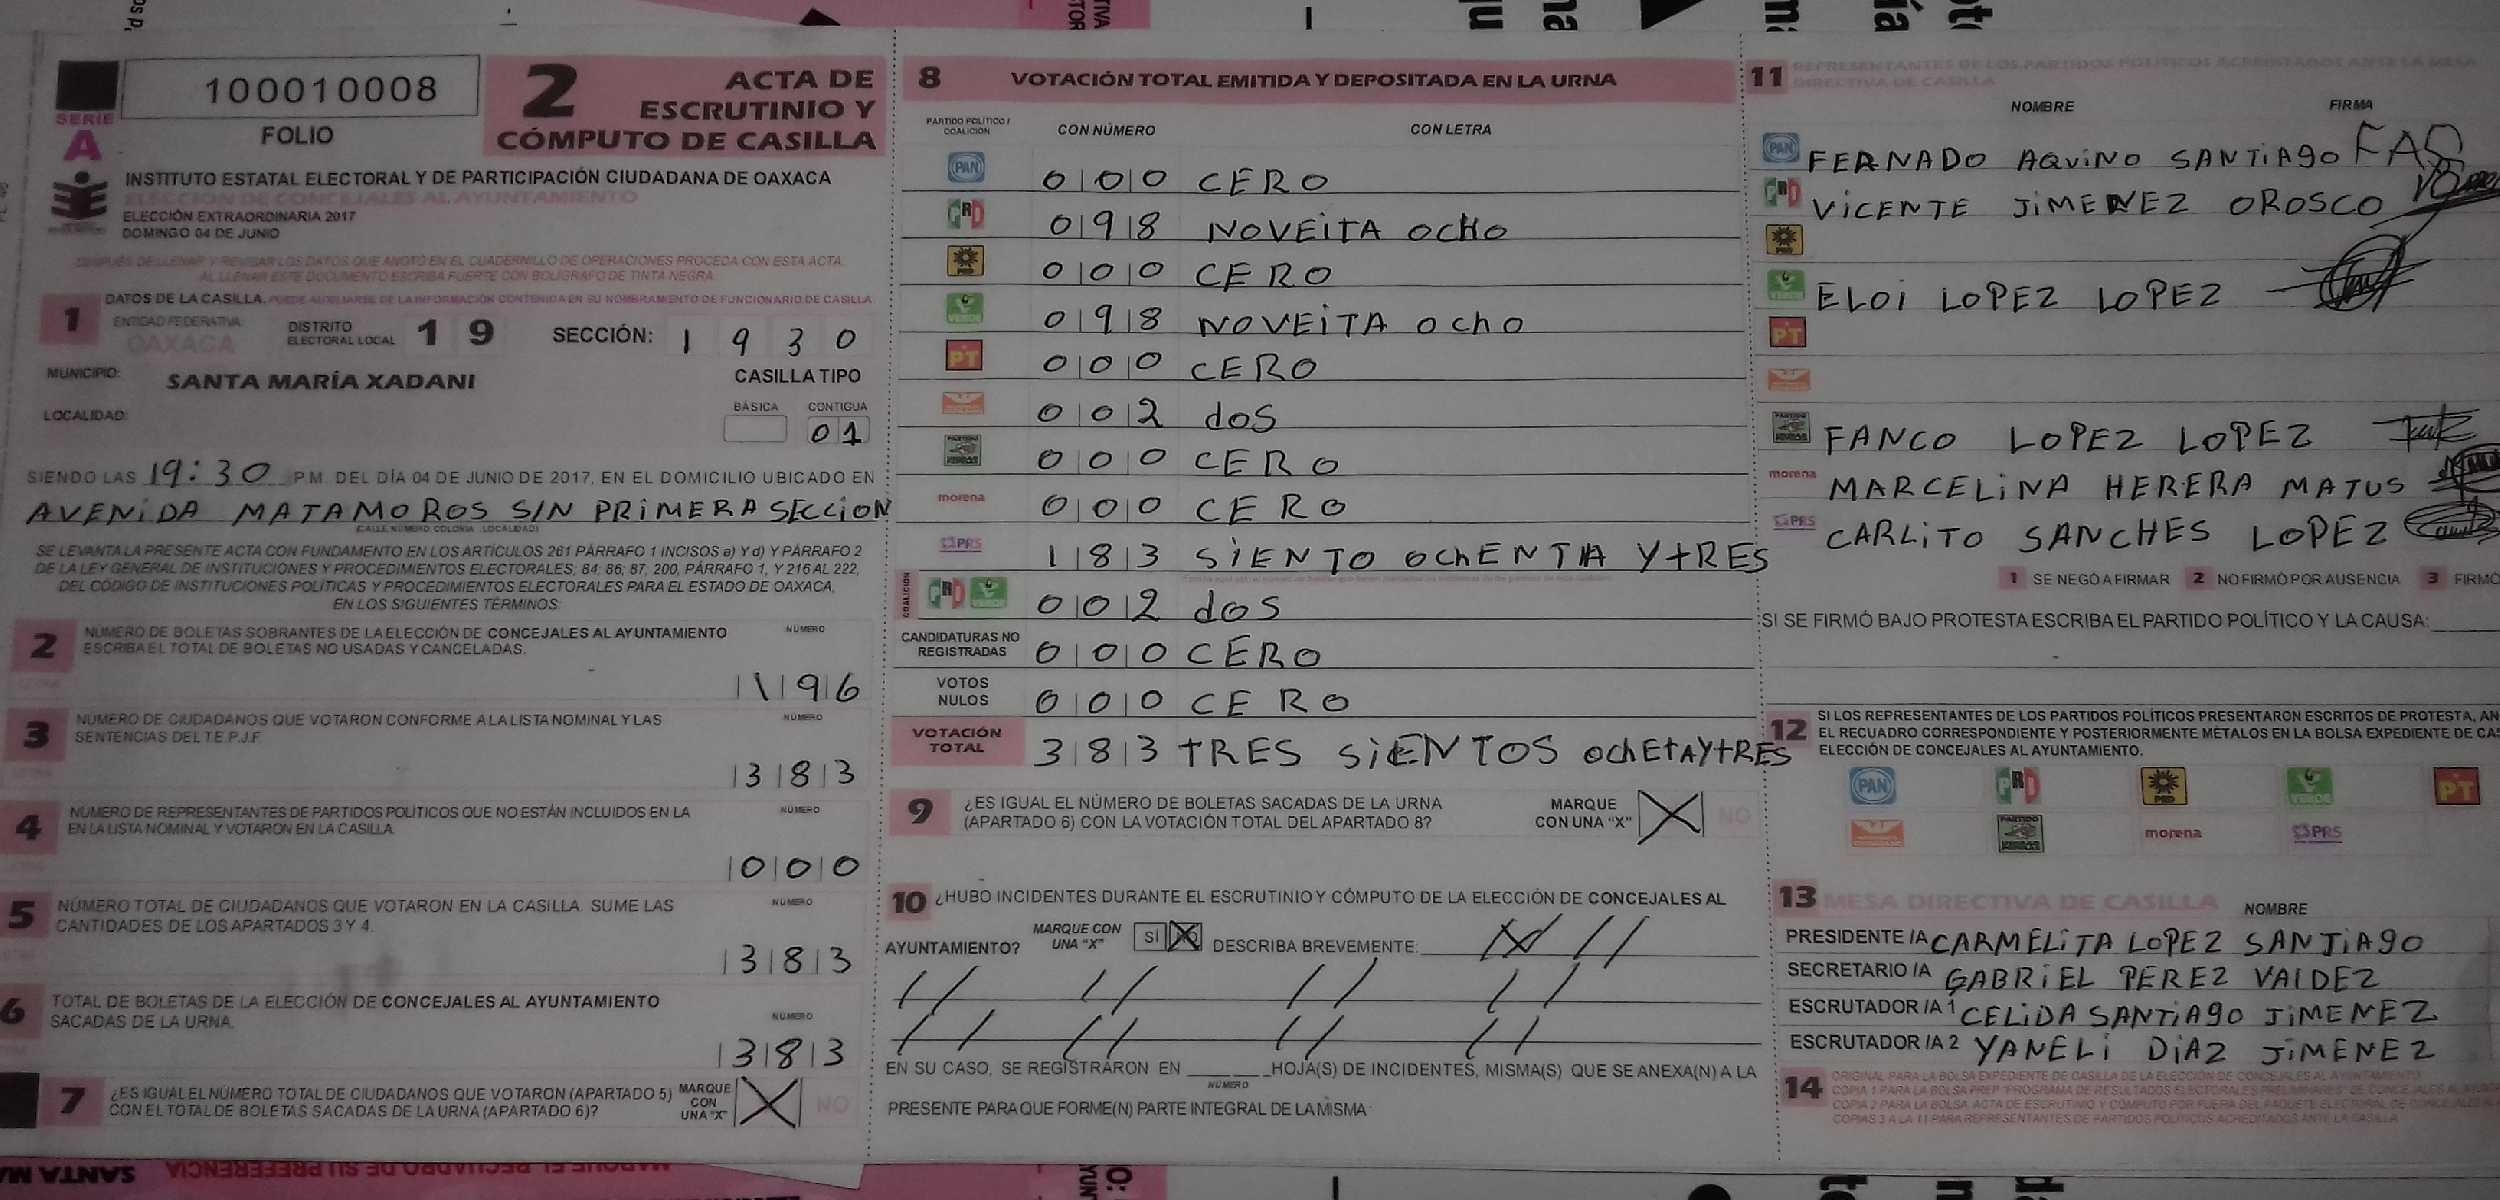 100010008
FOLIO
SERIE
A
2 ACTA DE
ESCRUTINIO Y
CÓMPUTO DE CASILLA
INSTITUTO ESTATAL ELECTORAL Y DE PARTICIPACIÓN CIUDADANA DE OAXACA
ELECCIÓN DE CONCEJALES AL AYUNTAMIENTO
ELECCIÓN EXTRAORDINARIA 2017
DOMINGO 04 DE JUNIO
DESPUÉS DE LLENAR Y REVISAR LOS DATOS QUE ANOTÓ EN EL CUADERNILLO DE OPERACIONES PROCEDA CON ESTA ACTA.
AL LLENAR ESTE DOCUMENTO ESCRIBA FUERTE CON BOLÍGRAFO DE TINTA NEGRA
1 DATOS DE LA CASILLA. PUEDE AUXILIARSE DE LA INFORMACIÓN CONTENIDA EN SU NOMBRAMIENTO DE FUNCIONARIO DE CASILLA
ENTIDAD FEDERATIVA: OAXACA
DISTRITO ELECTORAL LOCAL 19
SECCIÓN: 1930
MUNICIPIO: SANTA MARÍA XADANI
CASILLA TIPO
LOCALIDAD:
BÁSICA CONTIGUA
01
SIENDO LAS 19:30 P.M. DEL DÍA 04 DE JUNIO DE 2017, EN EL DOMICILIO UBICADO EN
AVENiDA MATAMOROS S/N PRiMERA SECCiON
(CALLE, NÚMERO, COLONIA, LOCALIDAD)
SE LEVANTA LA PRESENTE ACTA CON FUNDAMENTO EN LOS ARTÍCULOS 261 PÁRRAFO 1 INCISOS a) Y d) Y PÁRRAFO 2
DE LA LEY GENERAL DE INSTITUCIONES Y PROCEDIMIENTOS ELECTORALES; 84; 86; 87, 200, PÁRRAFO 1, Y 216 AL 222,
DEL CÓDIGO DE INSTITUCIONES POLÍTICAS Y PROCEDIMIENTOS ELECTORALES PARA EL ESTADO DE OAXACA,
EN LOS SIGUIENTES TÉRMINOS:
2 NÚMERO DE BOLETAS SOBRANTES DE LA ELECCIÓN DE CONCEJALES AL AYUNTAMIENTO
ESCRIBA EL TOTAL DE BOLETAS NO USADAS Y CANCELADAS.
NÚMERO
196
3 NÚMERO DE CIUDADANOS QUE VOTARON CONFORME A LA LISTA NOMINAL Y LAS
SENTENCIAS DEL T.E.P.J.F.
NÚMERO
383
4 NÚMERO DE REPRESENTANTES DE PARTIDOS POLÍTICOS QUE NO ESTÁN INCLUIDOS EN LA
EN LA LISTA NOMINAL Y VOTARON EN LA CASILLA.
NÚMERO
000
5 NÚMERO TOTAL DE CIUDADANOS QUE VOTARON EN LA CASILLA. SUME LAS
CANTIDADES DE LOS APARTADOS 3 Y 4.
NÚMERO
383
6 TOTAL DE BOLETAS DE LA ELECCIÓN DE CONCEJALES AL AYUNTAMIENTO
SACADAS DE LA URNA.
NÚMERO
383
7 ¿ES IGUAL EL NÚMERO TOTAL DE CIUDADANOS QUE VOTARON (APARTADO 5)
CON EL TOTAL DE BOLETAS SACADAS DE LA URNA (APARTADO 6)?
MARQUE CON UNA "X" X NO
8 VOTACIÓN TOTAL EMITIDA Y DEPOSITADA EN LA URNA
PARTIDO POLÍTICO / COALICIÓN CON NÚMERO CON LETRA
PAN 000 CERO
PRD 098 NOVEiTA OCHO
PRD 000 CERO
VERDE 098 NOVEiTA OchO
PT 000 CERO
002 doS
000 CERO
morena 000 CERO
PRS 183 SiENTO OchENTIA Y tRES
COALICIÓN PRD VERDE 002 doS
CANDIDATURAS NO REGISTRADAS 000 CERO
VOTOS NULOS 000 CERO
VOTACIÓN TOTAL 383 tRES SiENTOS OchEtAYtRES
9 ¿ES IGUAL EL NÚMERO DE BOLETAS SACADAS DE LA URNA
(APARTADO 6) CON LA VOTACIÓN TOTAL DEL APARTADO 8?
MARQUE CON UNA "X" X NO
10 ¿HUBO INCIDENTES DURANTE EL ESCRUTINIO Y CÓMPUTO DE LA ELECCIÓN DE CONCEJALES AL
AYUNTAMIENTO? MARQUE CON UNA "X" SÍ X DESCRIBA BREVEMENTE:
EN SU CASO, SE REGISTRARON EN ___ HOJA(S) DE INCIDENTES, MISMA(S) QUE SE ANEXA(N) A LA
NÚMERO
PRESENTE PARA QUE FORME(N) PARTE INTEGRAL DE LA MISMA
11 REPRESENTANTES DE LOS PARTIDOS POLÍTICOS ACREDITADOS ANTE LA MESA
DIRECTIVA DE CASILLA
NOMBRE FIRMA
PAN FERNADO AQUiNO SANTiAgO FAS
VICENTE JiMENEZ OROSCO
ELOi LOPEZ LOPEZ
PT
FANCO LOPEZ LOPEZ
morena MARCELiNA HERERA MATUS
PRS CARLiTO SANCHES LOPEZ
1 SE NEGÓ A FIRMAR 2 NO FIRMÓ POR AUSENCIA 3 FIRMÓ
SI SE FIRMÓ BAJO PROTESTA ESCRIBA EL PARTIDO POLÍTICO Y LA CAUSA:
12 SI LOS REPRESENTANTES DE LOS PARTIDOS POLÍTICOS PRESENTARON ESCRITOS DE PROTESTA, AN
EL RECUADRO CORRESPONDIENTE Y POSTERIORMENTE MÉTALOS EN LA BOLSA EXPEDIENTE DE CAS
ELECCIÓN DE CONCEJALES AL AYUNTAMIENTO.
PAN PRD VERDE PT
morena PRS
13 MESA DIRECTIVA DE CASILLA
NOMBRE
PRESIDENTE /A CARMELiTA LOPEZ SANTiAgO
SECRETARIO /A GABRiEL PEREZ VALDEZ
ESCRUTADOR /A 1 CELiDA SANTiAgO JiMENEZ
ESCRUTADOR /A 2 YANELi DiAZ JiMENEZ
14 ORIGINAL PARA LA BOLSA EXPEDIENTE DE CASILLA DE LA ELECCIÓN DE CONCEJALES AL AYUNTAMIENTO
COPIA 1 PARA LA BOLSA PREP "PROGRAMA DE RESULTADOS ELECTORALES PRELIMINARES" DE CONCEJALES AL
COPIA 2 PARA LA BOLSA ACTA DE ESCRUTINIO Y CÓMPUTO POR FUERA DEL PAQUETE ELECTORAL DE CONCEJALES
COPIAS 3 A LA 11 PARA REPRESENTANTES DE PARTIDOS POLÍTICOS ACREDITADOS ANTE LA CASILLA